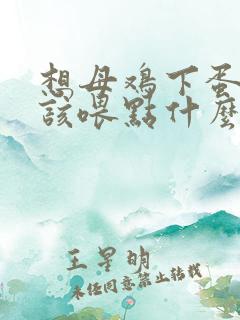 想母鸡下蛋
该喂點什麼
王星明
未经同意禁止转载